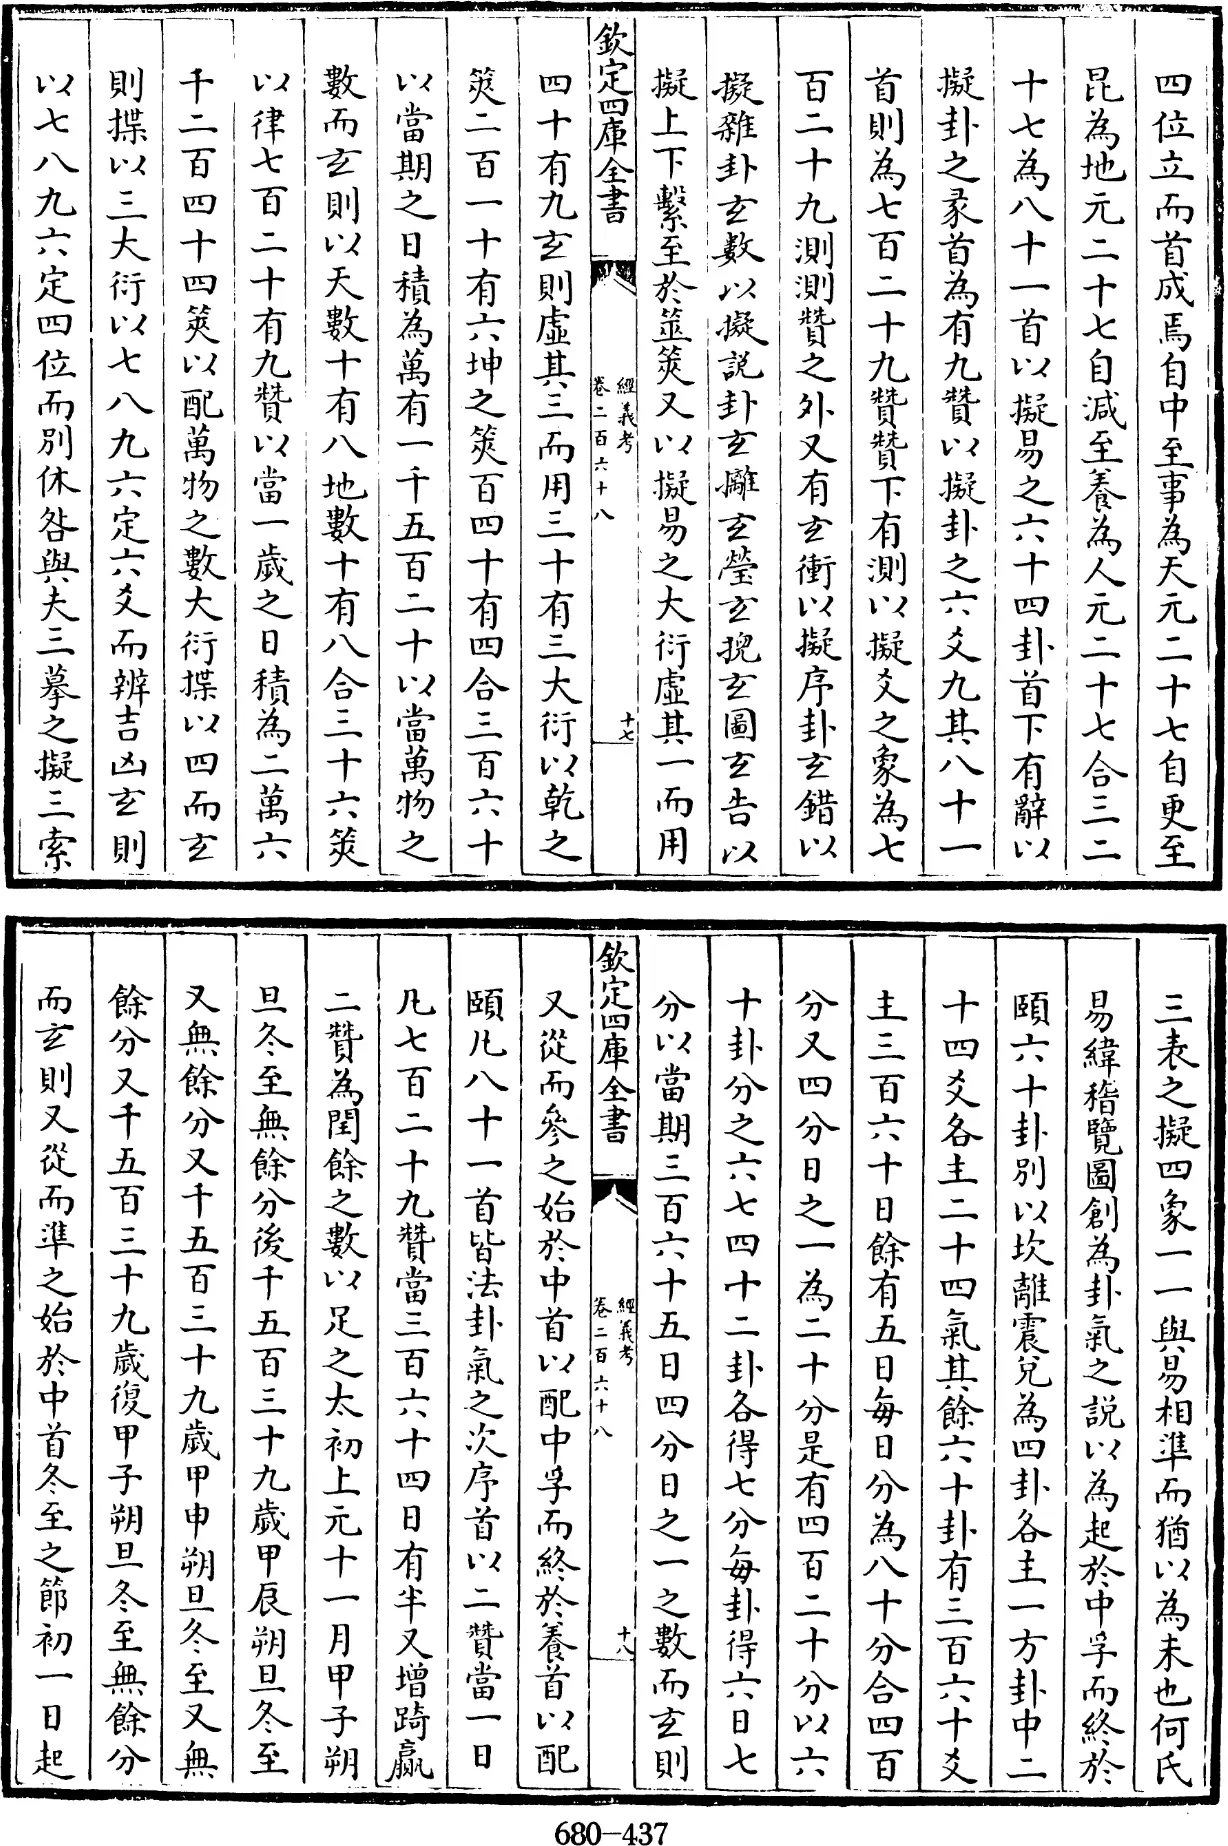 四位立而首成焉自中至事為天元二十七自更至
昆為地元二十七自減至養為人元二十七合三二
十七為八十一首以擬易之六十四卦首下有辭以
擬卦之彖首為有九贊以擬卦之六爻九其八十一
首則為七百二十九贊贊下有測以擬爻之象為七
百二十九測測贊之外又有玄衝以擬序卦玄錯以
擬雜卦玄數以擬說卦玄攡玄瑩玄掜玄圖玄告以
擬上下繫至於筮筴又以擬易之大衍虛其一而用
欽定四庫全書
經義考
卷二百六十八
十七
四十有九玄則虛其三而用三十有三大衍以乾之
筴二百一十有六坤之筴百四十有四合三百六十
以當期之日積為萬有一千五百二十以當萬物之
數而玄則以天數十有八地數十有八合三十六筴
以律七百二十有九贊以當一歲之日積為二萬六
千二百四十四筴以配萬物之數大衍揲以四而玄
則揲以三大衍以七八九六定六爻而辨吉凶玄則
以七八九六定四位而別休咎與夫三摹之擬三索
三表之擬四象一一與易相準而猶以為未也何氏
易緯稽覽圖創為卦氣之說以為起於中孚而終於
頤六十卦別以坎離震兌為四卦各主一方卦中二
十四爻各主二十四氣其餘六十卦有三百六十爻
主三百六十日餘有五日每日分為八十分合四百
分又四分日之一為二十分是有四百二十分以六
十卦分之六七四十二卦各得七分每卦得六日七
分以當期三百六十五日四分日之一之數而玄則
欽定四庫全書
經義考
卷二百六十八
十八
又從而參之始於中首以配中孚而終於養首以配
頤凡八十一首皆法卦氣之次序首以二贊當一日
凡七百二十九贊當三百六十四日有半又增踦贏
二贊為閏餘之數以足之太初上元十一月甲子朔
旦冬至無餘分後千五百三十九歲甲辰朔旦冬至
又無餘分又千五百三十九歲甲申朔旦冬至又無
餘分又千五百三十九歲復甲子朔旦冬至無餘分
而玄則又從而準之始於中首冬至之節初一日起
680-437